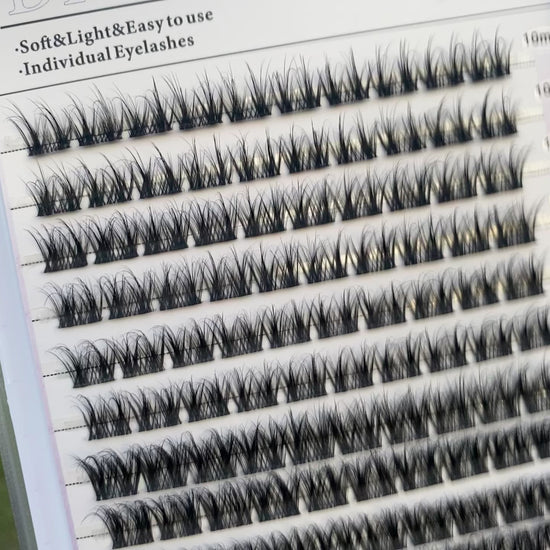 ·Soft&Light&Easy to use
·Individual Eyelashes
10m